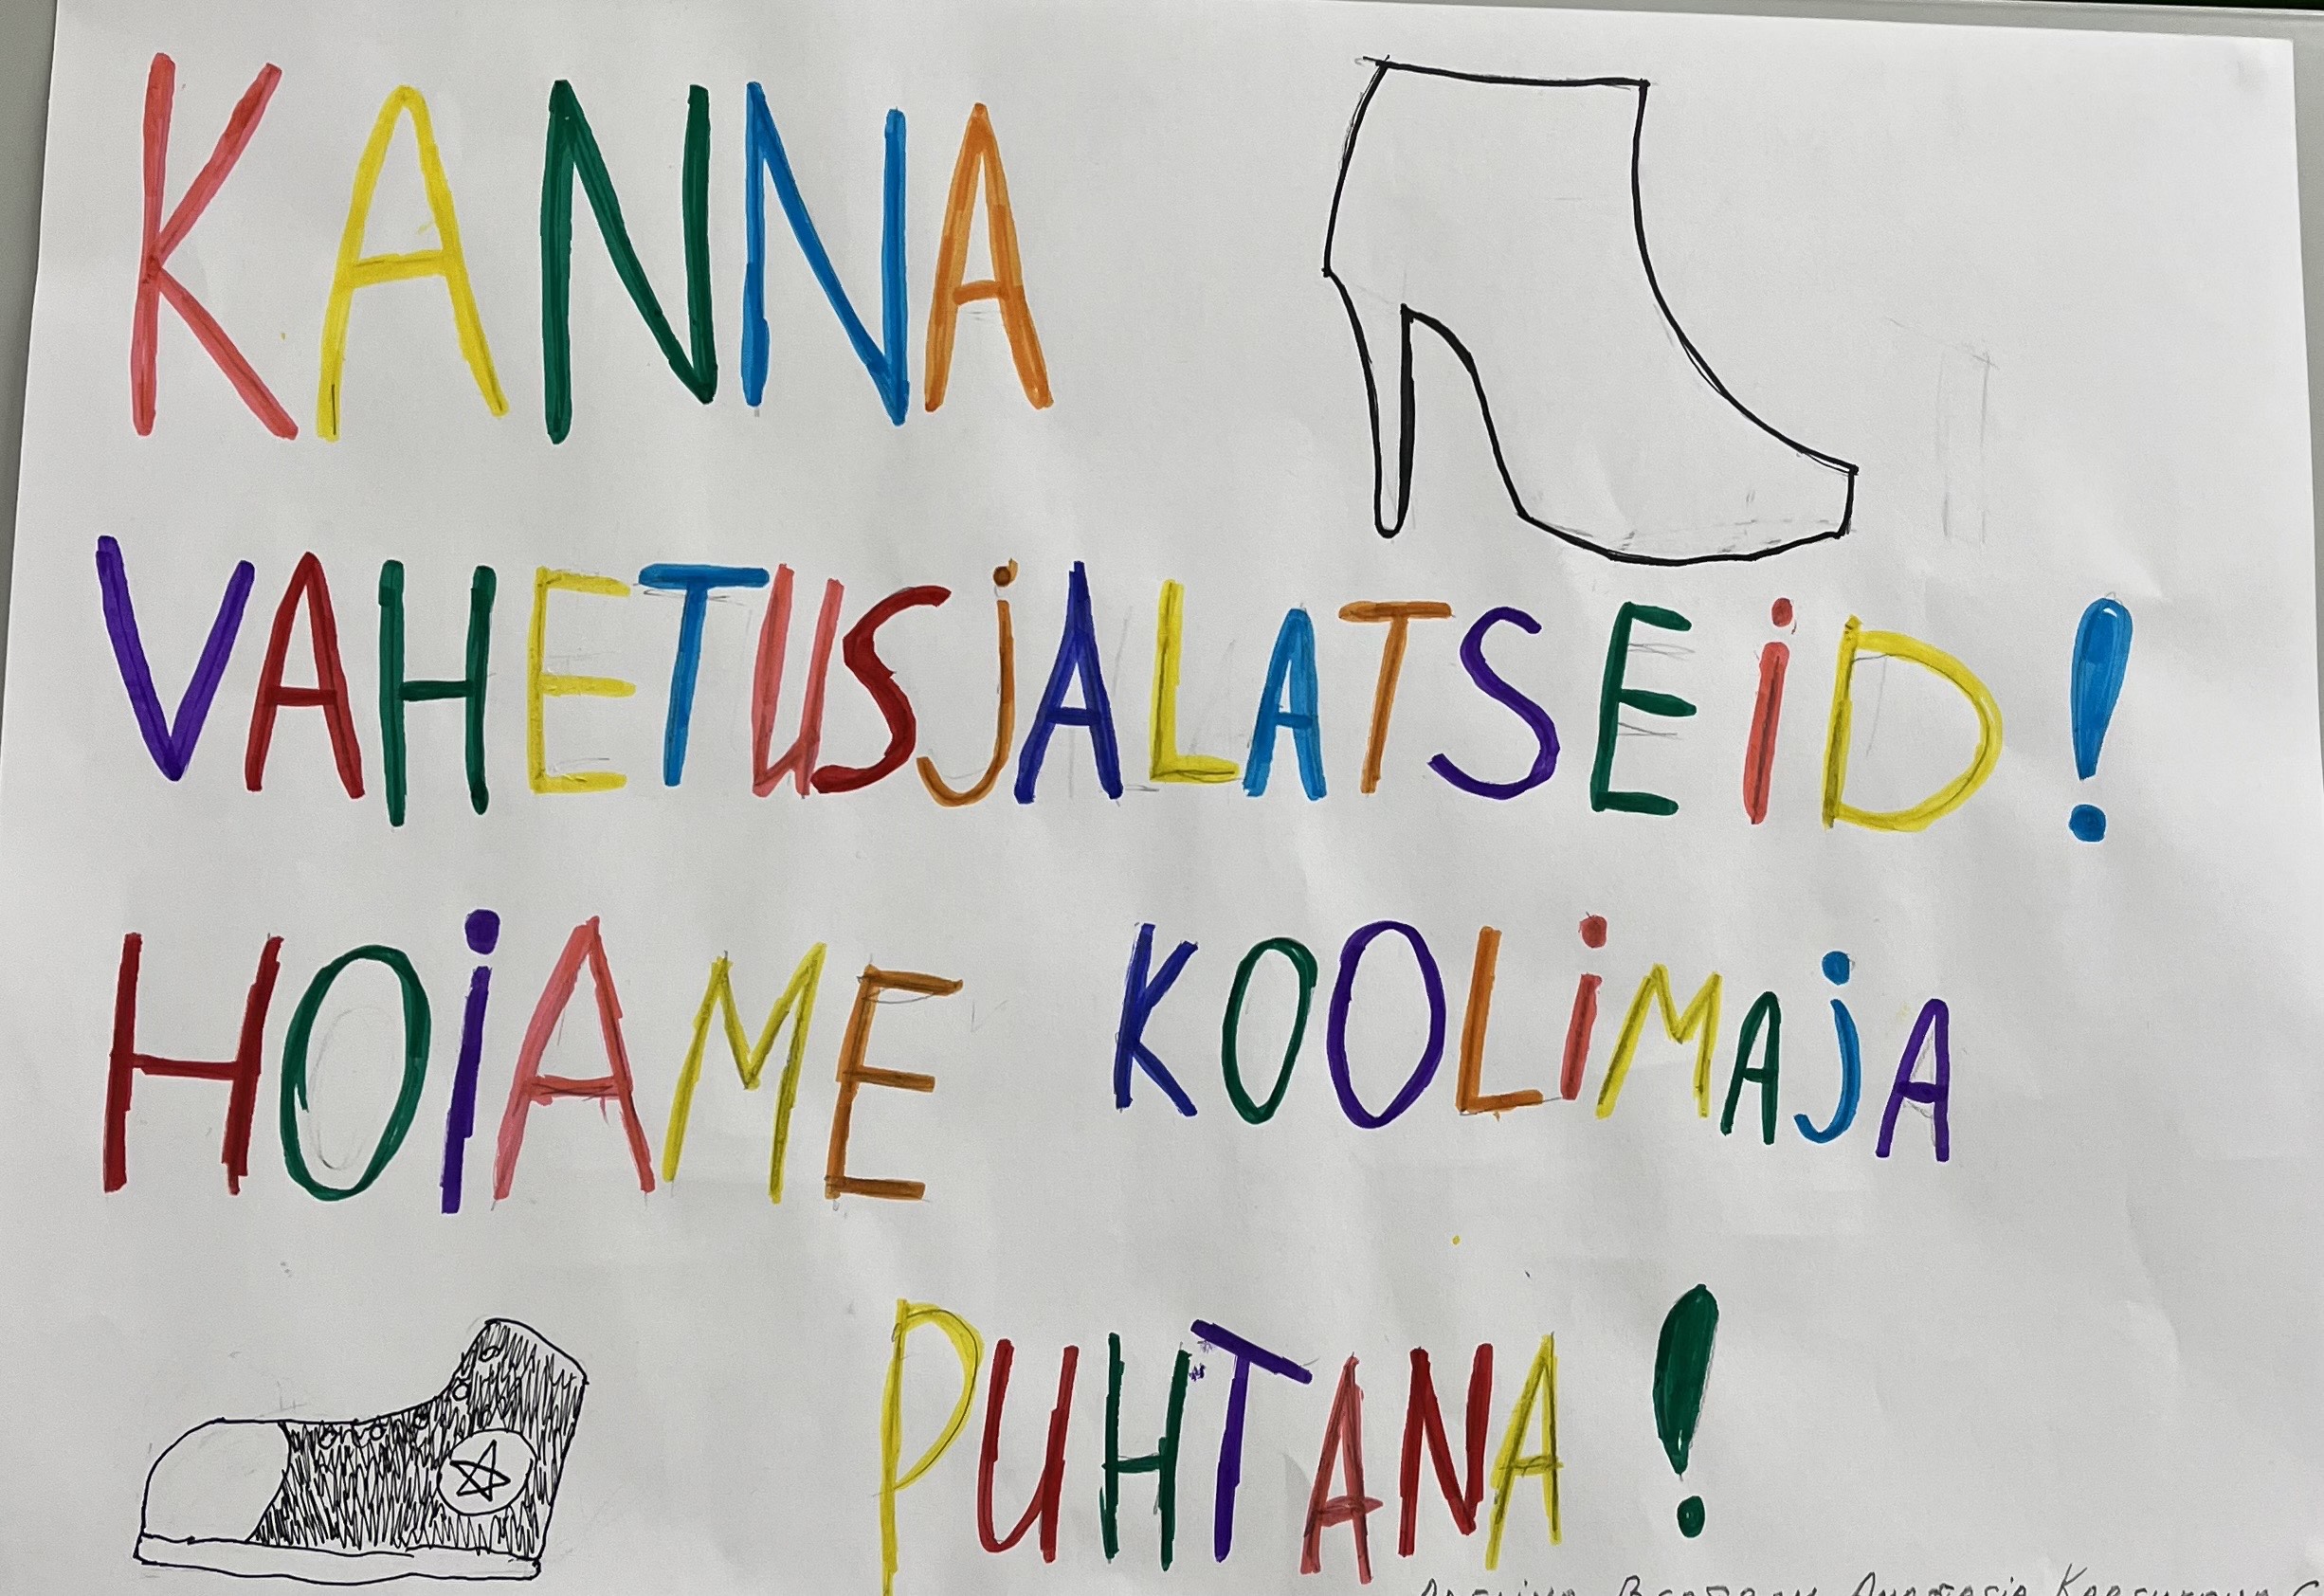 KANNA
VAHETUSJALATSEID!
HOIAME KOOLIMAJA
PUHTANA!